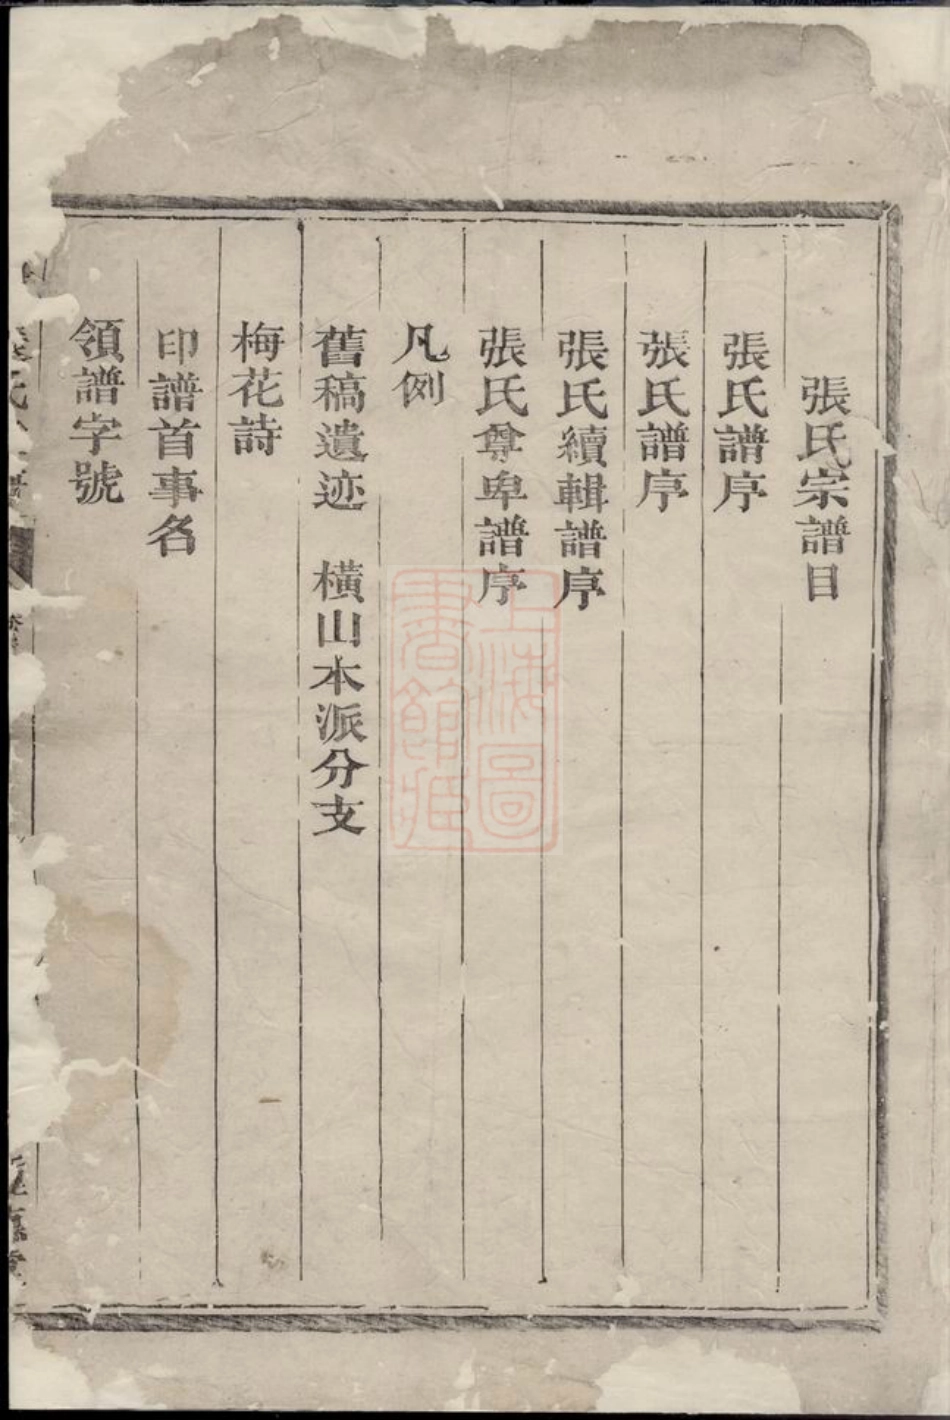 張氏宗譜目
張氏譜序
張氏譜序
張氏續輯譜序
張氏尊卑譜序
凡例
舊稿遺迹　橫山本派分支
梅花詩
印譜首事名
領譜字號
上海圖書館藏